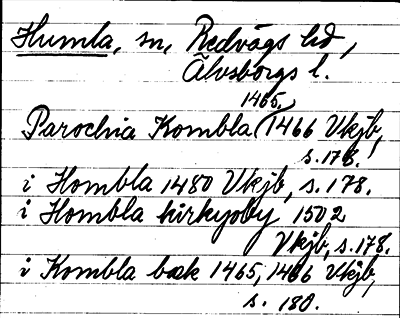 Humla, sn, Redvägs hd,
Älvsborgs l.
1465,
Parochia Hombla (1466 Vkjb,
s. 178.
i Hombla 1480 Vkjb, s. 178.
i Hombla kirkyoby 1502
Vkjb, s. 178.
i Hombla bæk 1465, 1466 Vkjb,
s. 180.